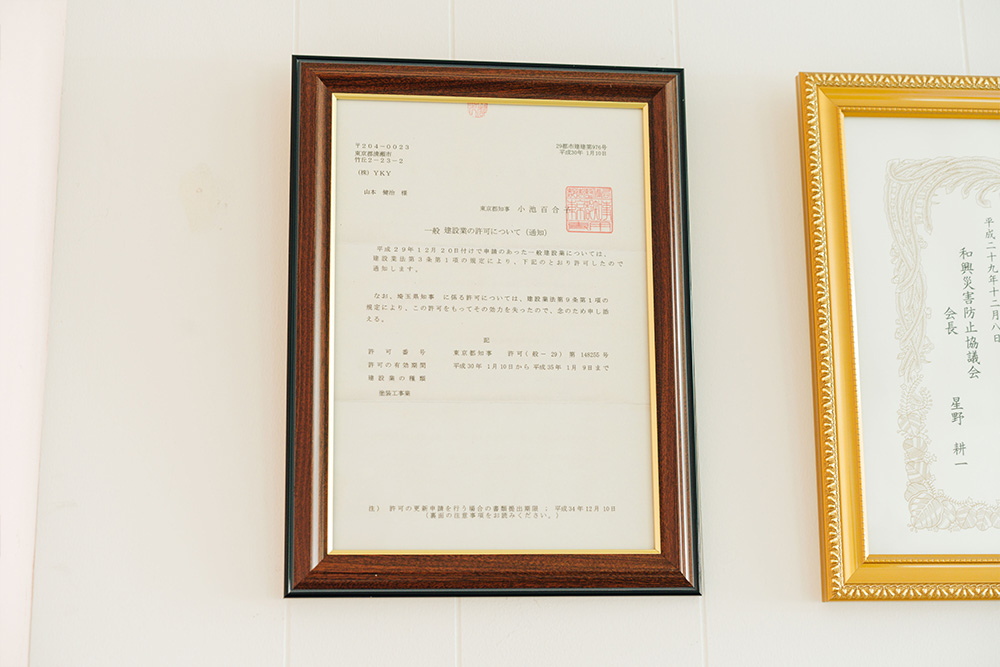 〒204-0023
東京都清瀬市
竹丘2-23-2
(株) YKY
山本 様
29都市建建第976号
平成30年 1月10日
東京都知事 小池百合子
一般 建設業の許可について (通知)
平成29年12月20日付けで申請のあった一般建設業については、
建設業法第3条第1項の規定により、下記のとおり許可したので
通知します。
なお、埼玉県知事 に係る許可については、建設業法第9条第1項の
規定により、この許可をもってその効力を失ったので、念のため申し添
える。
記
許可番号 東京都知事 許可(般-29)第148255号
許可の有効期間 平成30年 1月10日から 平成35年 1月 9日まで
建設業の種類
塗装工事業
注) 許可の更新申請を行う場合の書類提出期限 : 平成34年12月10日
(裏面の注意事項をお読みください。)
平成二十九年十二月八日
和興災害防止協議会
会長 星野 耕一